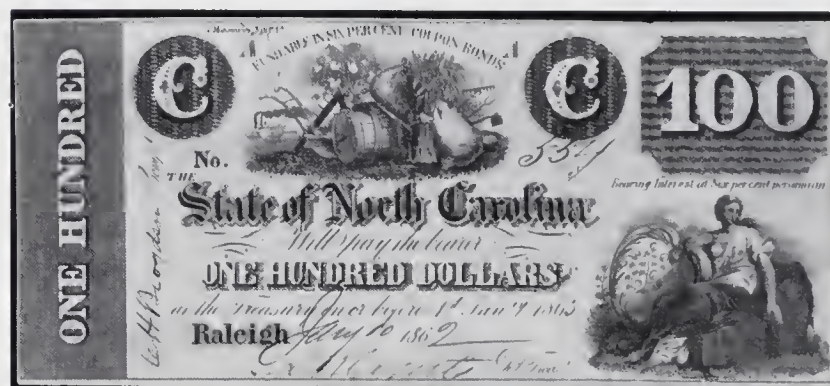 ONE HUNDRED
C
FUNDABLE IN SIX PER CENT COUPON BONDS
C
100
No.
Bearing Interest at Six per cent per annum
THE
State of North Carolina
Will pay the bearer
ONE HUNDRED DOLLARS
at the Treasury on or before 1st Jany
Raleigh Jany 10 1862